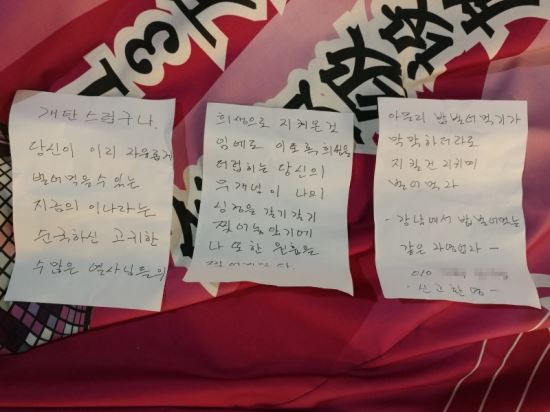 개탄스럽구나
당신이 이리 자유롭게
벌어먹을수있는
지금의 이나라는
순국하신 고귀한
수많은 열사님들의
희생으로 지켜온것
임에도 이토록 희생을
더럽히는 당신의
무개념이 나의
심정을 갈기갈기
찢어놓았기에
나 또한 원흉을
찢어버린다
아무리 밥벌어먹기가
막막하더라도
지킬건 지키며
벌어먹자
- 강남에서 밥벌어먹는
같은 자영업자 -
010
- 신고환영 -